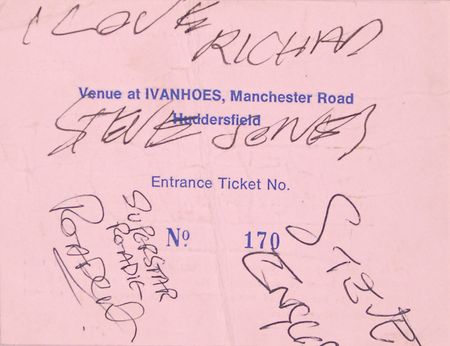 I LOVE
RICHARD
Venue at IVANHOES, Manchester Road
Huddersfield
STEVE JONES
Entrance Ticket No.
Nº 170
SUPERSTAR
ROADIE
ROADENT
STEVE